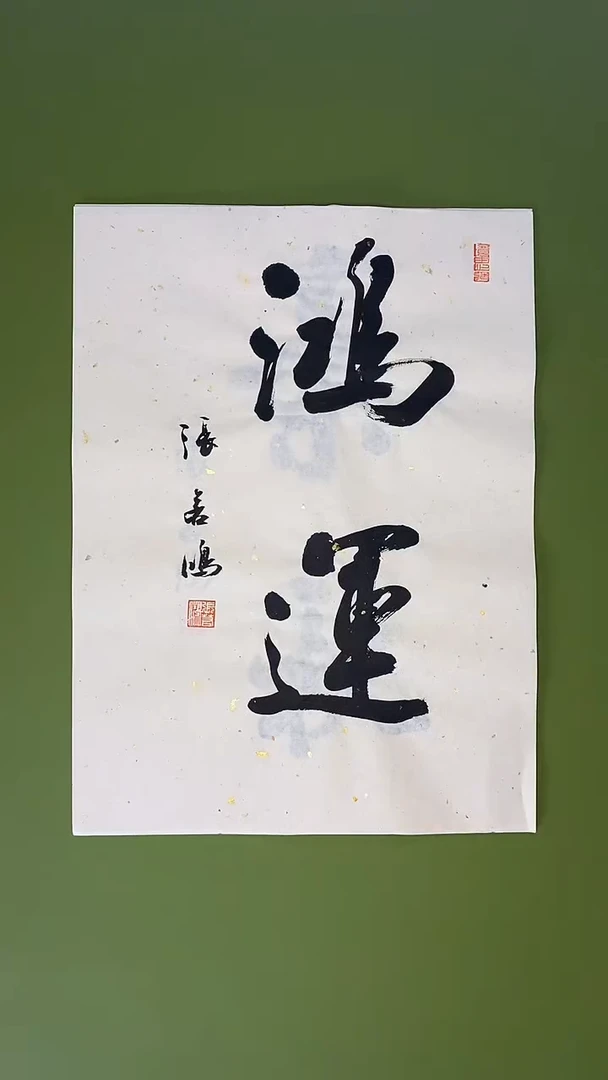 鴻
運
張善鴻